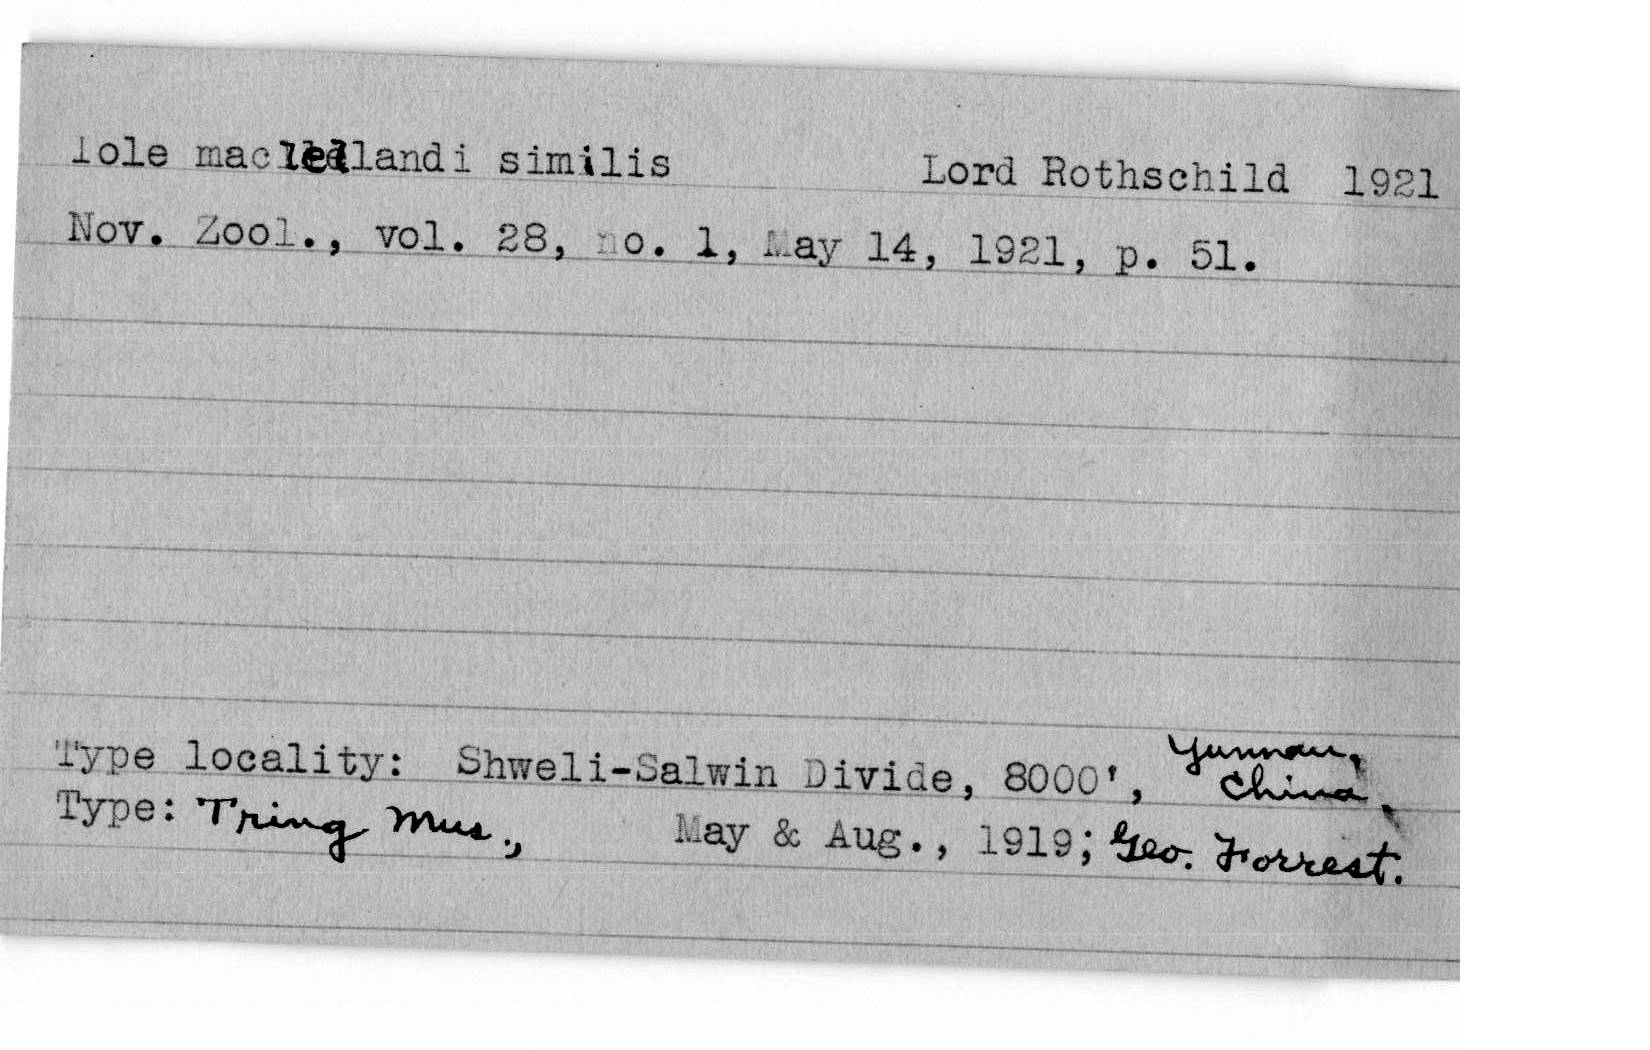 Iole maclellandi similis Lord Rothschild 1921
Nov. Zool., vol. 28, no. 1, May 14, 1921, p. 51.
Type locality: Shweli-Salwin Divide, 8000', Yunnan, China,
Type: Tring Mus., May & Aug., 1919; Geo. Forrest.